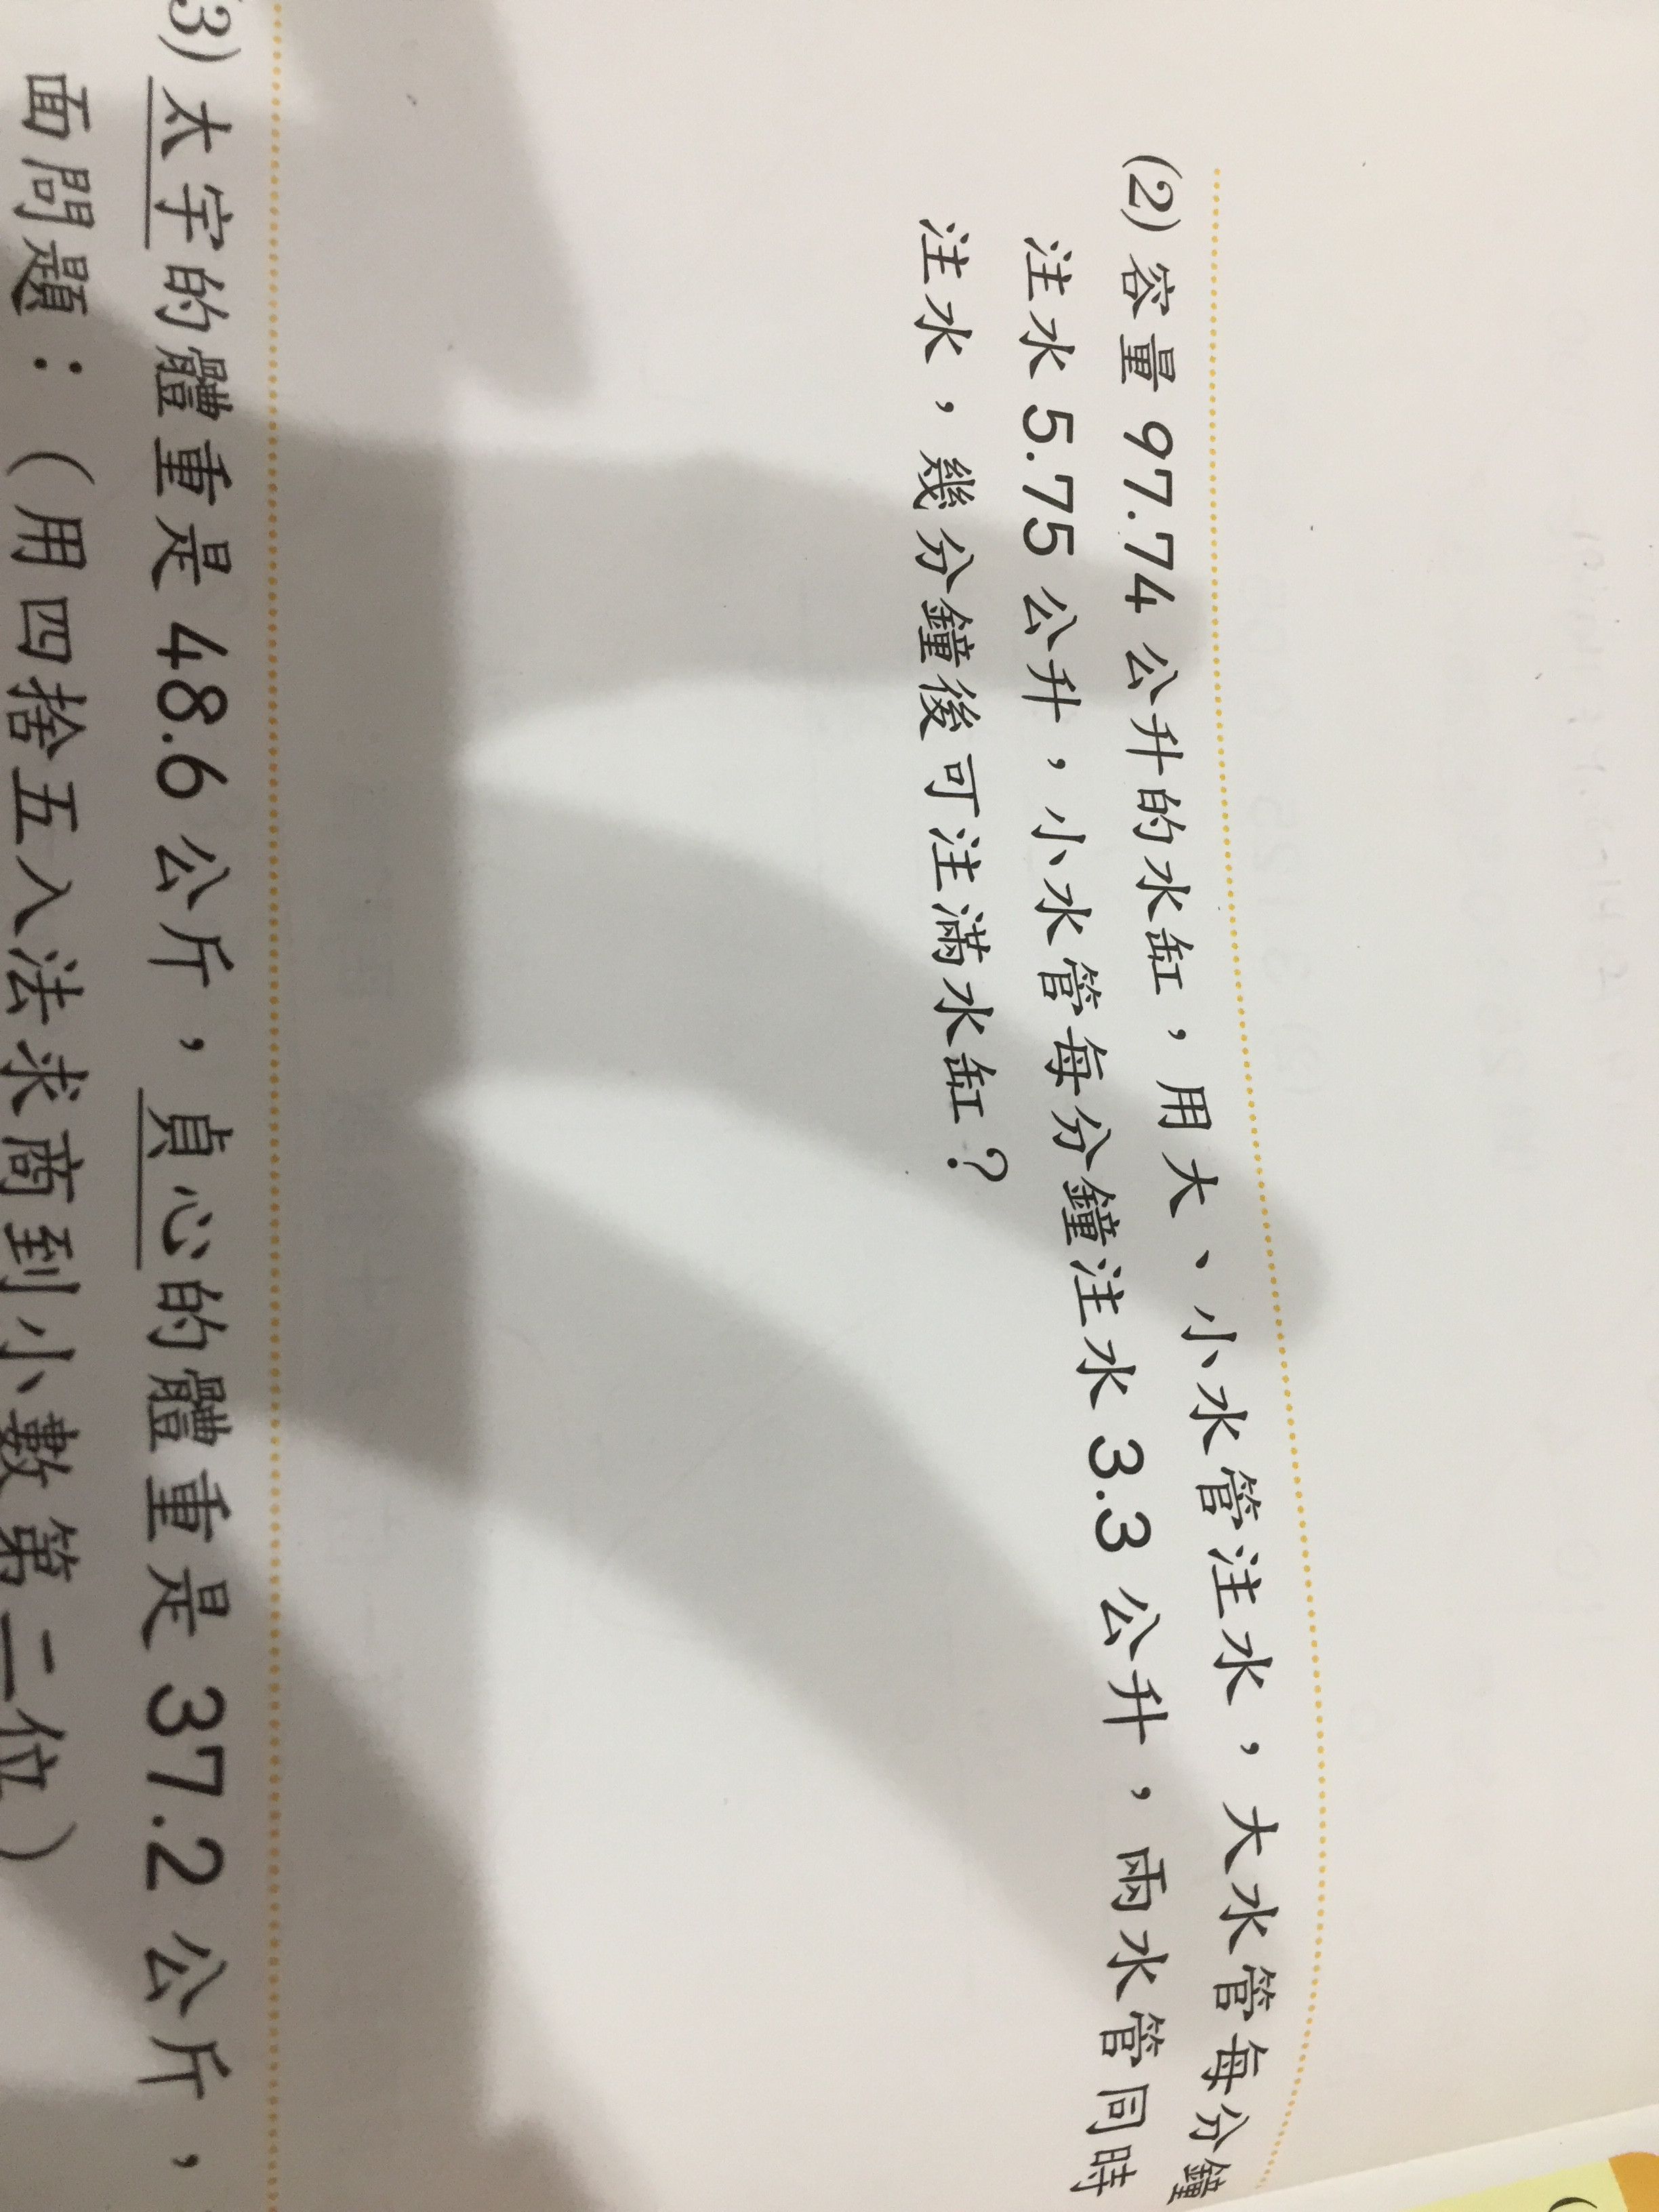 (2) 容量 97.74 公升的水缸，用大、小水管注水，大水管每分鐘
注水 5.75 公升，小水管每分鐘注水 3.3 公升，兩水管同時
注水，幾分鐘後可注滿水缸？
3) 太宇的體重是 48.6 公斤，貞心的體重是 37.2 公斤，
面問題：（用四捨五入法求商到小數第二位）